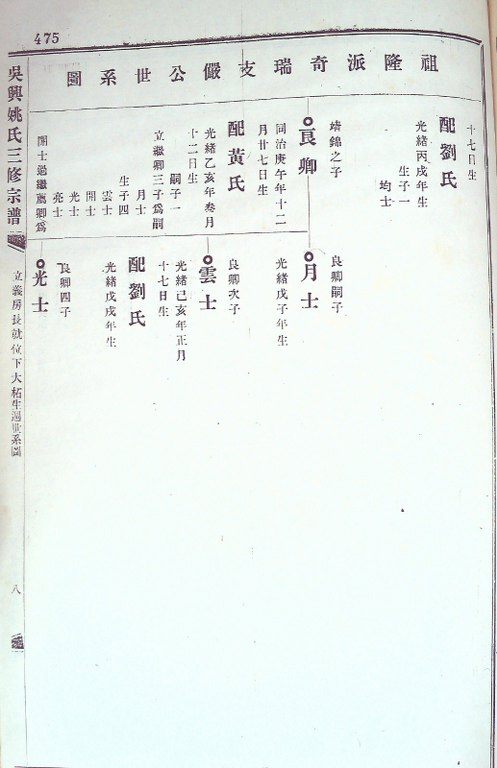 475
祖隆派奇瑞支儼公世系圖
十七日生
配劉氏
光緒丙戌年生
生子一
均士
靖錦之子
良卿
同治庚午年十二
月廿七日生
配黃氏
光緒乙亥年叁月
十二日生
嗣子一
立繼卿三子爲嗣
月士
生子四
雲士
開士
光士
亮士
開士過繼薦卿爲
良卿嗣子
月士
光緒戊子年生
良卿次子
雲士
光緒己亥年正月
十七日生
配劉氏
光緒戊戌年生
良卿四子
光士
吳興姚氏三修宗譜
立義房長就位下大柘生世系圖
八